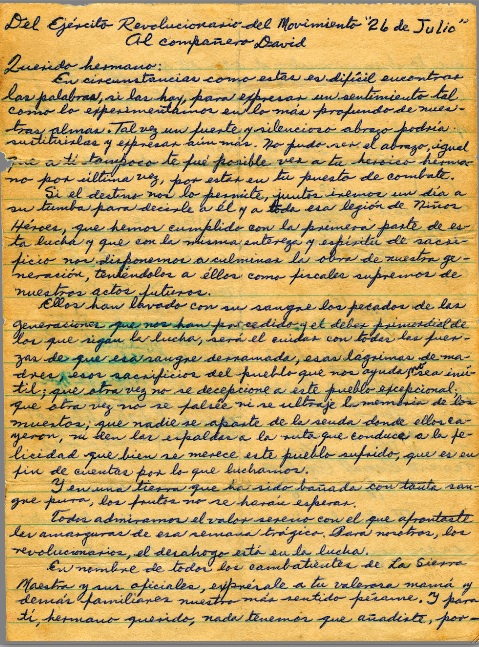 Del Ejército Revolucionario del Movimiento "26 de Julio"
Al compañero David
Querido hermano:
En circunstancias como estas es difícil encontrar
las palabras, si las hay, para expresar un sentimiento tal
como lo experimentamos en lo más profundo de nues-
tras almas. Tal vez un fuerte y silencioso abrazo podría
sustituirlas y expresar aún más. No pudo ser el abrazo, igual
que a ti tampoco te fué posible ver a tu heroico herma-
no por última vez, por estar en tu puesto de combate.
Si el destino nos lo permite, juntos iremos un día a
su tumba para decirle a él y a toda esa legión de Niños
Héroes, que hemos cumplido con la primera parte de es-
ta lucha y que con la misma entereza y espíritu de sacri-
ficio nos disponemos a culminar la obra de nuestra ge-
neración, teniéndolos a ellos como fiscales supremos de
nuestros actos futuros.
Ellos han lavado con su sangre los pecados de las
generaciones que nos han precedido y el deber primordial de
los que sigan la lucha, será el cuidar con todas las fuer-
zas de que esa sangre derramada, esas lágrimas de ma-
dres, esos sacrificios del pueblo que nos ayuda, sea inú-
til; que otra vez no se decepcione a este pueblo excepcional;
que otra vez no se falsée ni se ultraje la memoria de los
muertos; que nadie se aparte de la senda donde ellos ca-
yeron, ni den las espaldas a la ruta que conduce a la fe-
licidad que bien se merece este pueblo sufrido, que es en
fin de cuentas por lo que luchamos.
Y en una tierra que ha sido bañada con tanta san-
gre pura, los frutos no se harán esperar.
Todos admiramos el valor sereno con el que afrontaste
las amarguras de esa semana trágica. Para nosotros, los
revolucionarios, el desahogo está en la lucha.
En nombre de todos los combatientes de La Sierra
Maestra y sus oficiales, exprésale a tu valerosa mamá y
demás familiares nuestro más sentido pésame. Y para
ti, hermano querido, nada tenemos que añadirte, por-